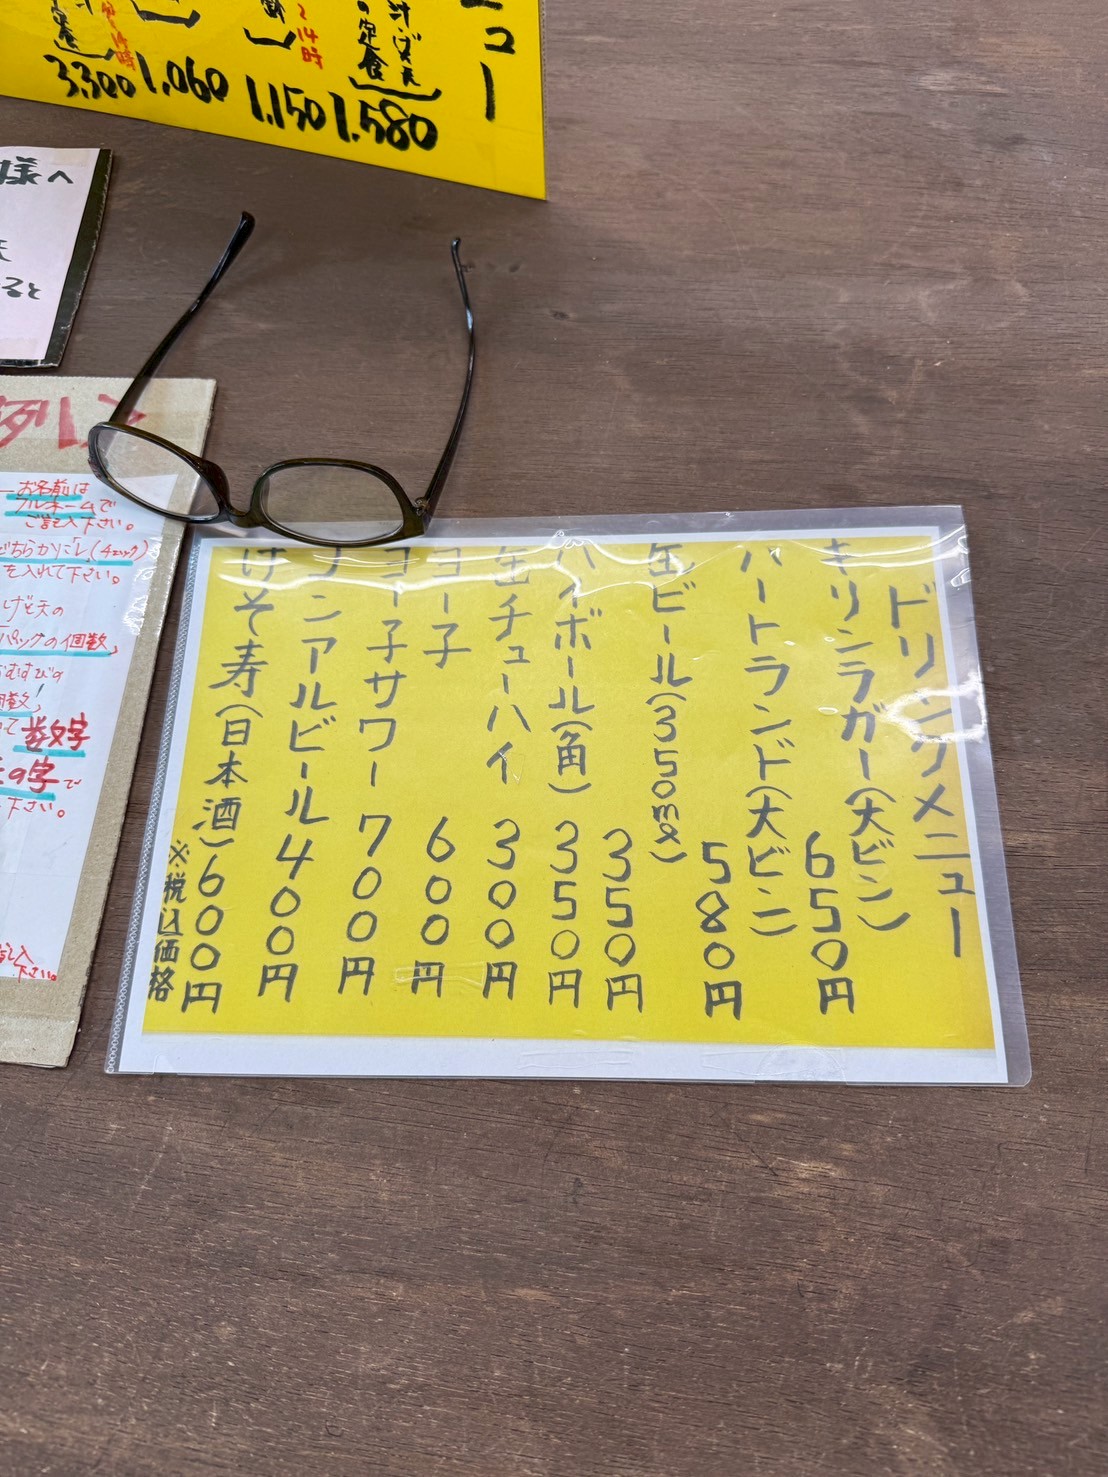 ドリンクメニュー
キリンラガー(大ビン)
650円
ハートランド(大ビン)
580円
缶ビール(350ml)
350円
ハイボール(角)350円
缶チューハイ 300円
ヨー子 600円
ヨー子サワー 700円
ノンアルビール400円
けそ寿(日本酒)600円
※税込価格
ニュー
の定食
1,580
14時
1,150
1,060
3,300
様へ
ると
お名前は
フルネームで
ご記入下さい。
どちらかにレ(チェック)
を入れて下さい。
げそ天の
パックの個数、
おむすびの
個数!
の字で
下さい。
下さい。